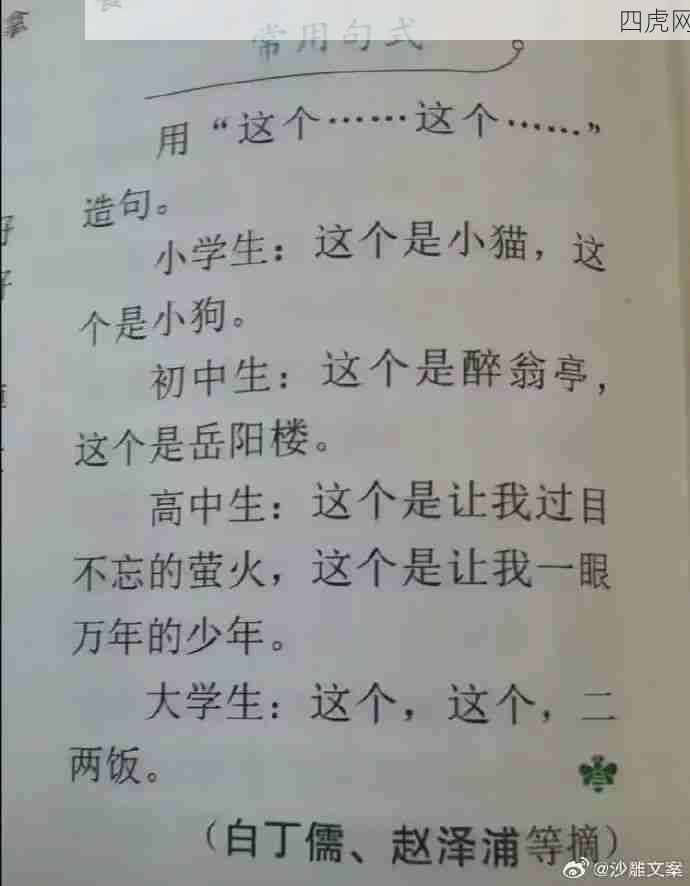 四虎网
常用句式
用“这个……这个……”
造句。
小学生：这个是小猫，这
个是小狗。
初中生：这个是醉翁亭，
这个是岳阳楼。
高中生：这个是让我过目
不忘的萤火，这个是让我一眼
万年的少年。
大学生：这个，这个，二
两饭。
（白丁儒、赵泽浦等摘）
@沙雕文案